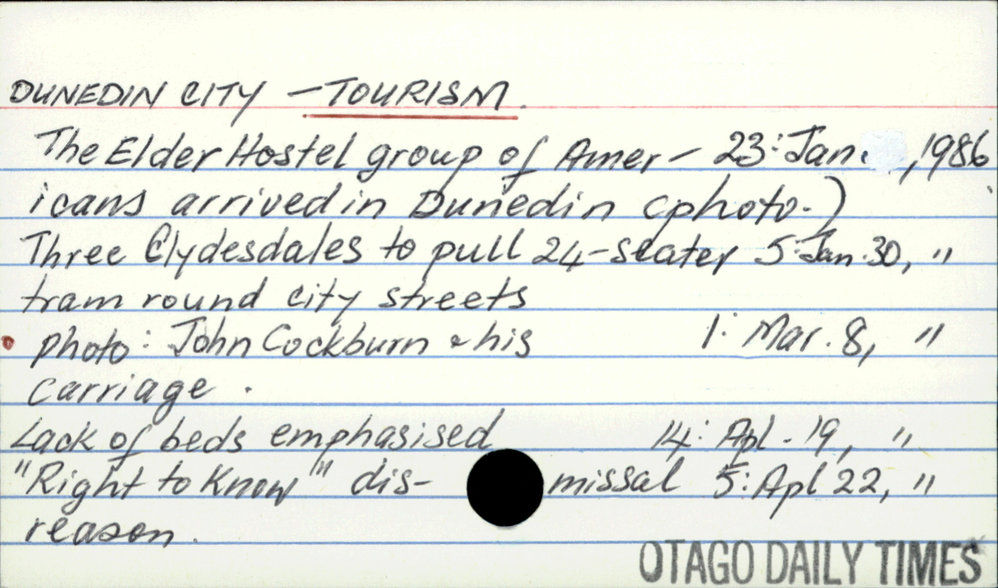 DUNEDIN CITY - TOURISM.
The Elder Hostel group of Amer - 23: Jan. , 1986
icans arrived in Dunedin (photo.)
Three Clydesdales to pull 24-seater 5: Jan. 30, "
tram round city streets
photo: John Cockburn & his 1: Mar. 8, "
carriage.
Lack of beds emphasised 14: Apl. 19, "
"Right to Know" dis- missal 5: Apl 22, "
reason.
OTAGO DAILY TIMES